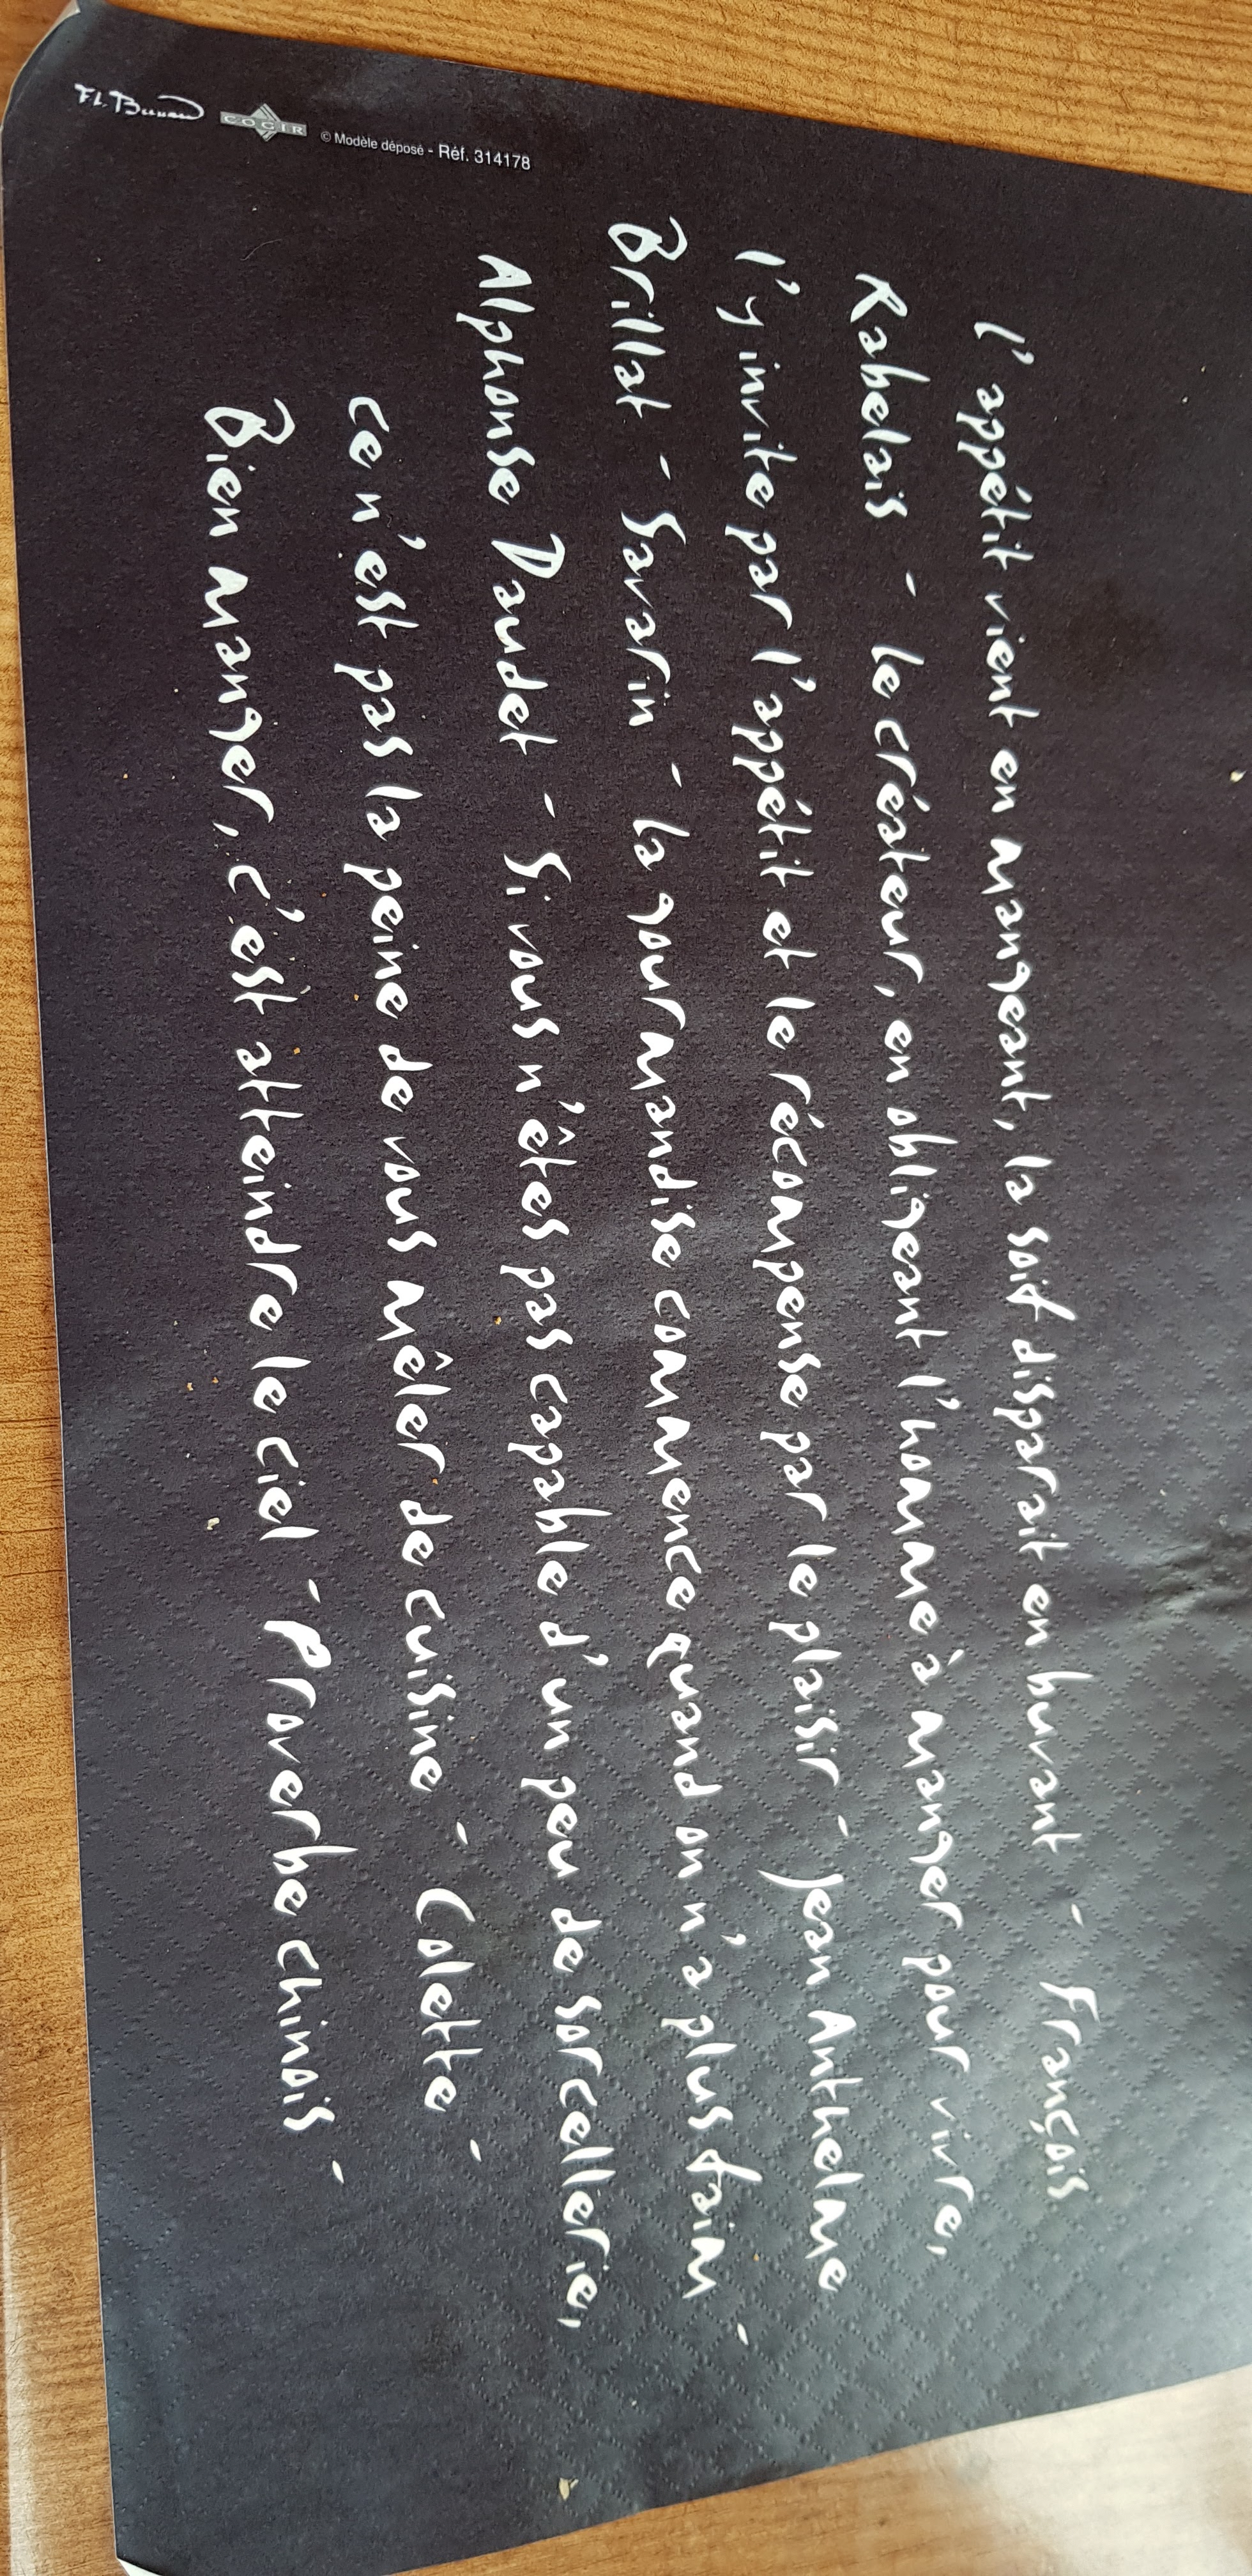 l'appétit vient en mangeant, la soif disparait en buvant - François
Rabelais - le créateur, en obligeant l'homme à manger pour vivre,
l'y invite par l'appétit et le récompense par le plaisir - Jean Anthelme
Brillat - Savarin - la gourmandise commence quand on n'a plus faim -
Alphonse Daudet - Si vous n'êtes pas capable d'un peu de sorcellerie,
ce n'est pas la peine de vous mêler de cuisine - Colette -
Bien manger, c'est atteindre le ciel - Proverbe chinois -
COGIR © Modèle déposé - Réf. 314178